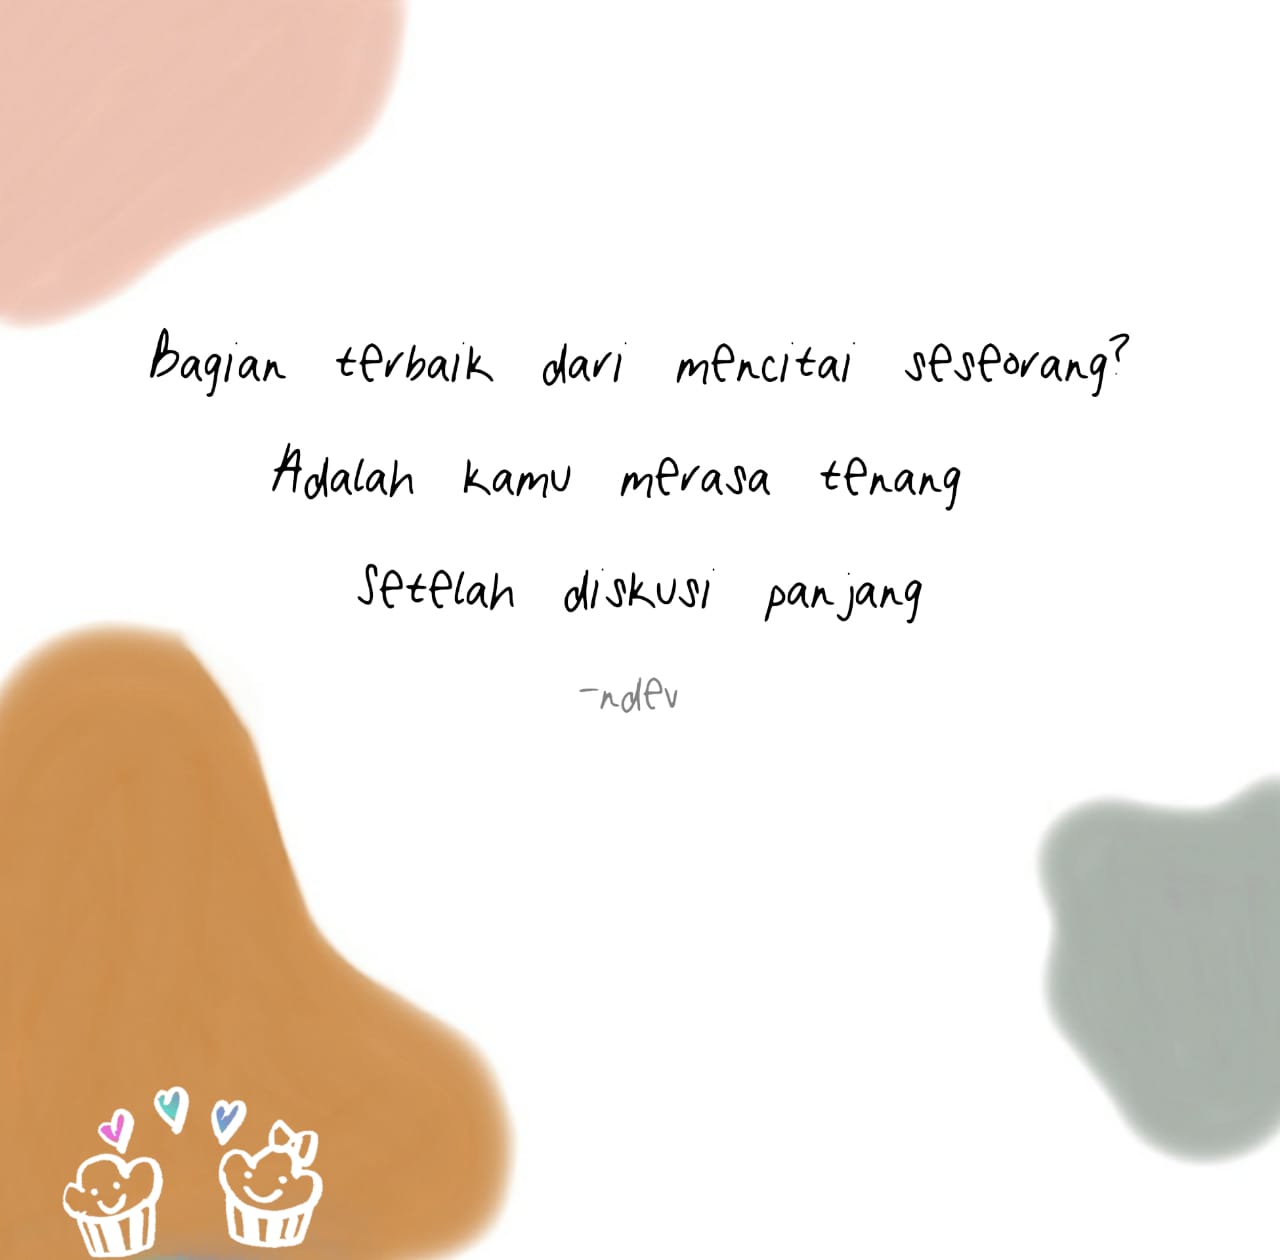 Bagian terbaik dari mencitai seseorang?
Adalah kamu merasa tenang
Setelah diskusi panjang
-ndev